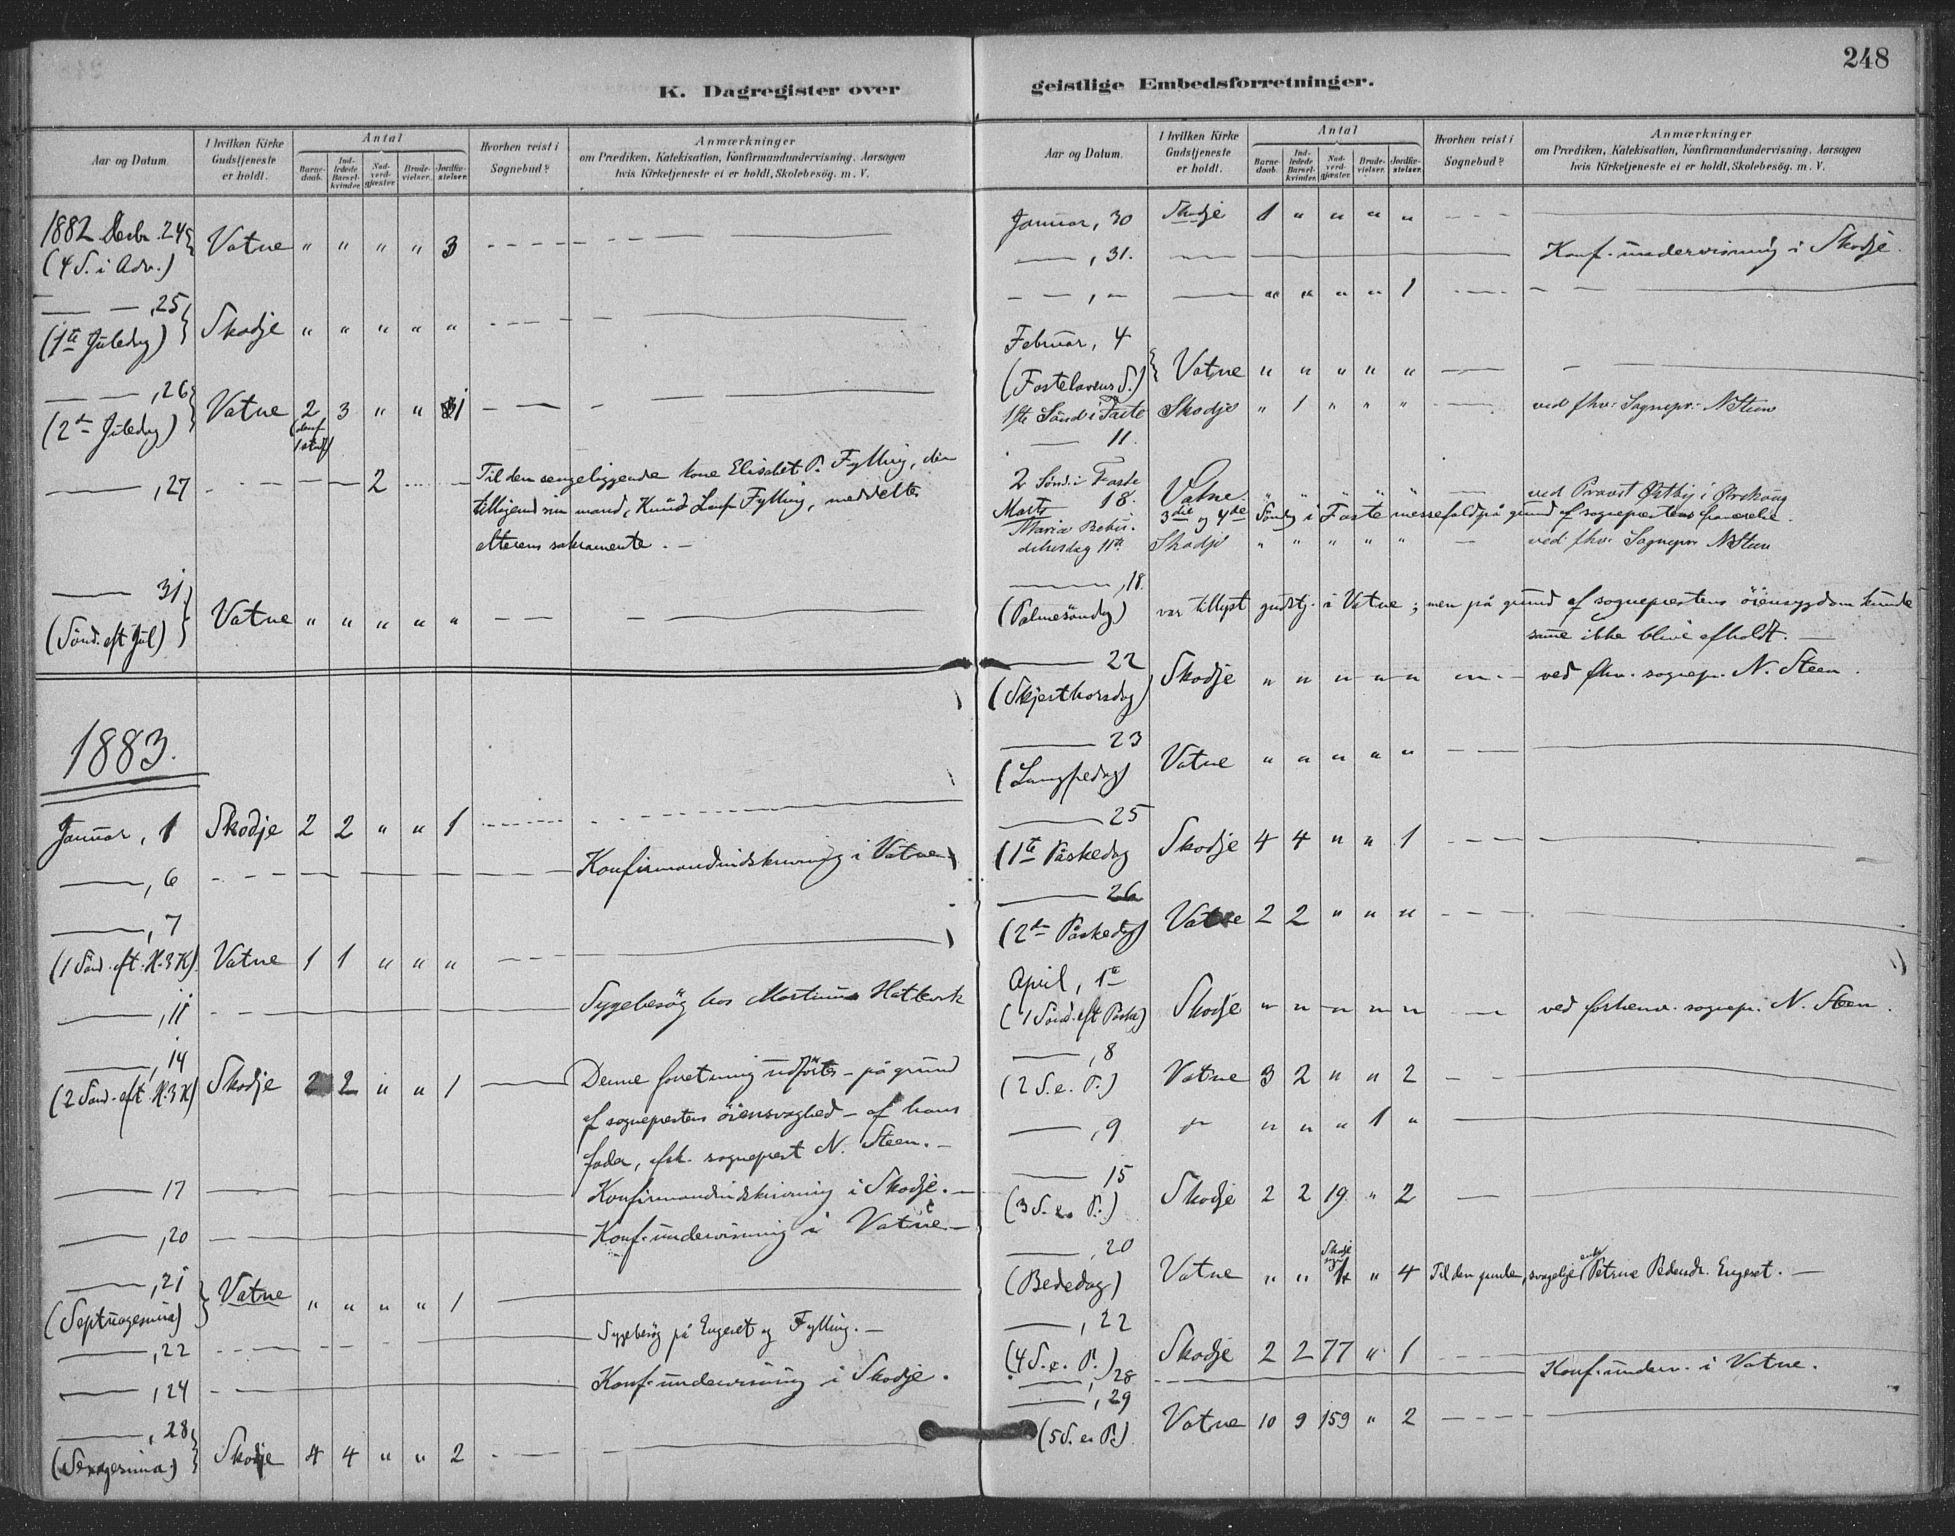 248
K. Dagregister over
geistlige Embedsforretninger.
Aar og Datum.
I hvilken Kirke Gudstjeneste er holdt.
Antal
Barne-daab.
Ind-ledede Barsel-kvinder.
Nad-verd-gjæster.
Brude-vielser.
Jordfæ-stelser.
Hvorhen reist i Sognebud?
Anmærkninger
om Prædiken, Katekisation, Konfirmandundervisning. Aarsagen
hvis Kirketjeneste ei er holdt, Skolebesøg. m. V.
1882 Decbr. 24 Vatne " " " " 3
(4 S. i Adv.)
— — , 25
(1te Juledag) Skodje " " " " "
— — , 26
(2den Juledag) Vatne 2 3 " "
— , 27 2 Til den sengeliggende kone Elisabet P. Fylling, der
tilligemed sin mand, Knud Fylling, meddeltes
alterens sakramente. —
— 31
(Sönd. eft Jul) Vatne " " " " "
1883.
Januar, 1 Skodje 2 2 " " 1
— , 6 Konfirmandindskrivning i Vatne
— , 7
(1 Sönd. eft. H. 3 K) Vatne 1 1 " " "
— , 11 Sygebesög hos Martinus Hatlevik
— , 14
(2 Sönd. eft. H. 3 K) Skodje 2 2 " " 1 Denne forretning udförtes – på grund
af sogneprestens öiensvaghed – af hans
fader, sogneprest N. Steen. —
— 17 Konfirmandindskrivning i Skodje. —
— , 20 Konf.undervisning i Vatne —
— , 21
(Septuagesima) Vatne " " " " 1
— , 22 Sygebesög på Engeset og Fylling. —
— , 24 Konf.undervisning i Skodje.
— , 28
(Sexagesima) Skodje 4 4 " " 2
Aar og Datum.
I hvilken Kirke Gudstjeneste er holdt.
Antal
Barne-daab.
Ind-ledede Barsel-kvinder.
Nad-verd-gjæster.
Brude-vielser.
Jordfæ-stelser.
Hvorhen reist i Sognebud?
Anmærkninger
om Prædiken, Katekisation, Konfirmandundervisning. Aarsagen
hvis Kirketjeneste ei er holdt, Skolebesøg. m. V.
Januar, 30 Skodje 1 " " " "
— , 31. Konf.undervisning i Skodje.
— — , — " " " " 1
Februar, 4
(Fastelavens S.) Vatne " " " " "
1ste Sönd i Faste Skodje " 1 " " " ved fhv. Sognepr. N Steen
— 11.
2 Sönd. i Faste
18. Vatne " " " " " ved Provst Østbye i Ørskoug
Marts 3die og 4de Söndag i Faste messefald på grund af sogneprestens fraværelse.
Mariæ Bebu-
delsesdag 11te Skodje " " " " " ved fhv. Sognepr N Steen
— , 18.
(Palmesöndag) var tillyst gudstj. i Vatne; men på grund af sogneprestens öiensygdom kunde
samme ikke blive afholdt. —
— 22
(Skjærthorsdag) Skodje " " " " " ved fhv. sognepr. N. Steen.
— 23
(Langfredag) Vatne " " " " "
— 25
(1te Påskedag Skodje 4 4 " " 1
— 26
(2den Påskedag) Vatne 2 2 " " "
April, 1te
(1 Sönd. eft Påske) Skodje " " " " " ved forhenv. sognepr. N. Steen.
— , 8
(2 S. e. P.) Vatne 3 2 " " 2
— , 9 " " " 1 "
— 15
(3 S. e. P.) Skodje 2 2 19. " 2
— , 20
(Bededag) Vatne " " " 4 Til den gamle, svagelige enke Petrine Pedersdr. Engeset. —
— , 22
(4 S. e. P.) Skodje 2 2 77 " 1
— , 28 Konf.underv. i Vatne.
— , 29
(5 S. e. P.) Vatne 10 9 159 " 2